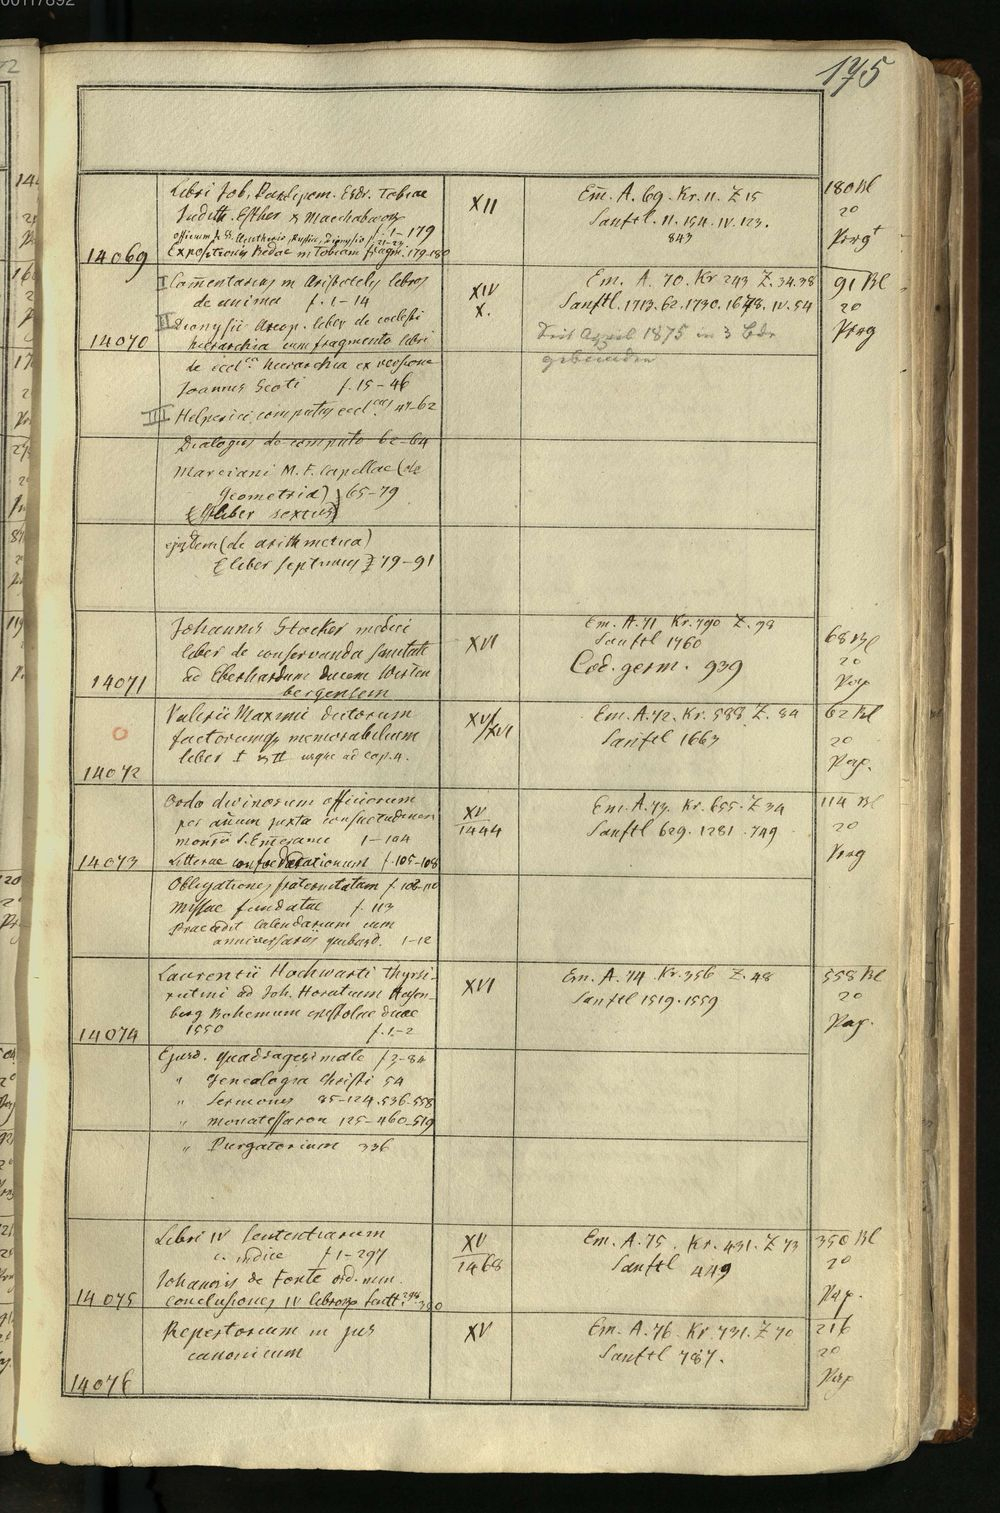 00117892
175
Libri Job, Paralipom. Esdr. Tobiae
Judith. Esther & Machabaeor
officium de SS. Eleutherio, Rustico, Dionysio f. 21-23 f. 1-179
Expositionis Bedae in Tobiam fragm. 179-180
14069
XII
Em. A. 69. Kr. 11. Z 15
Sanftl. 11. 154. IV. 123.
843
180 Bl
2o
Prgt
I Commentarius in Aristotelis libros
de anima f. 1-14
II Dionysii Areop. liber de coelesti
hierarchia cum fragmento libri
de eccl.ca hierarchia ex versione
Joannis Scoti f. 15-46
III Helperici computus eccl.cus 47-62
Dialogus de computo 62-64
Marciani M. F. Capellae (de
Geometria) 65-79
(liber sextus)
ejusdem (de arithmetica)
(liber septimus) 79-91
14070
XIV
X.
Em. A. 70. Kr 243 Z. 34.38
Sanftl. 1713. 62. 1730. 1678. IV. 54
Seit April 1875 in 3 Bde
gebunden
91 Bl
2o
Prg
Johannis Stocker medici
liber de conservanda sanitate
ad Eberhardum ducem Wirten
bergensem
14071
XVI
Em. A. 71 Kr. 790 Z. 98
Sanftl 1760
Cod. germ. 939
68 Bl
2o
Pap
Valerii Maximi dictorum
factorumq memorabilium
liber I & II usque ad cap. 4.
14072
XV/XVI
Em. A. 72. Kr. 588. Z. 84
Sanftl 1663
62 Bl
2o
Pap.
Ordo divinorum officiorum
per annum juxta consuetudinem
monrii S. Emerami 1-104
Litterae confoederationum f. 105-108
Obligationes fraternitatum f. 108-110
Missae fundatae f. 113
Praecedit Calendarium cum
anniversariis quibusd. 1-12
14073
XV
1444
Em. A. 73. Kr. 655. Z 34
Sanftl 629. 1281. 749
114 Bl
2o
Prg
Laurentii Hochwarti Thyrsi-
rutini ad Joh. Horatium Hasen-
berg Bohemum epistolae duae
1550 f. 1-2
14074
XVI
Em. A. 74 Kr. 356 Z. 48
Sanftl 1519. 1559
558 Bl
2o
Pap.
Ejusd. quadragesimale f 3-84
" Genealogia Christi 54
" Sermones 85-124. 536-558
" monatessaron 125-460-519
" Purgatorium 336
Libri IV Sententiarum
c. indice f 1-297
Johannis de Fonte ord. min.
conclusiones IV librorum Sentt. 298-350
14075
XV
1468
Em. A. 75. Kr. 431. Z 73
Sanftl 449
350 Bl
2o
Pap.
Repertorium in jus
canonicum
14076
XV
Em. A. 76. Kr. 731. Z 70
Sanftl 787.
216
2o
Pap